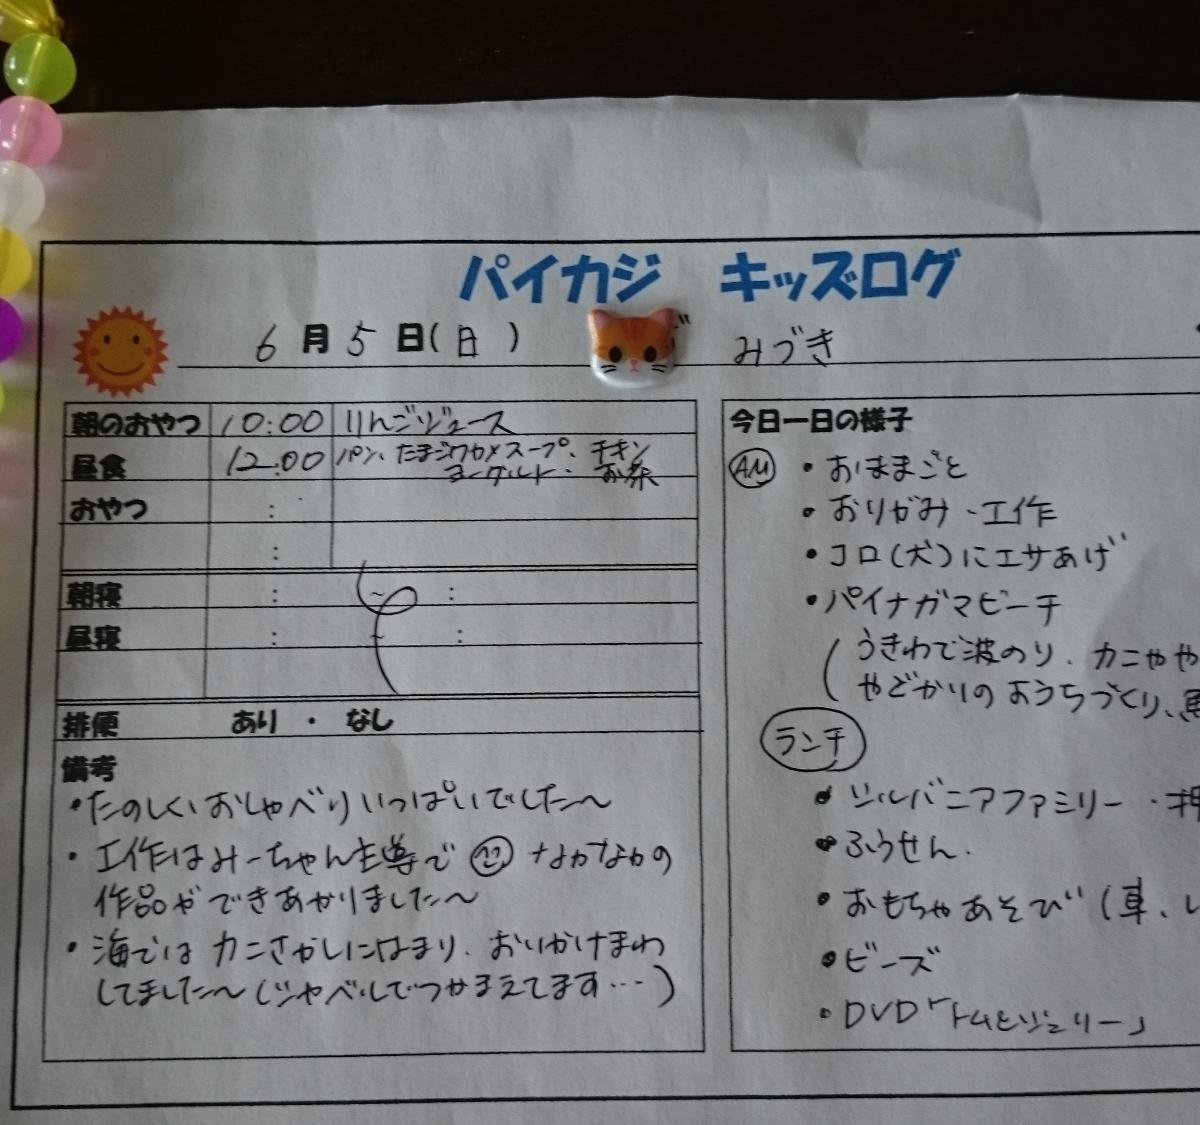 パイカジ キッズログ
6月5日(日) みづき
朝のおやつ 10:00 りんごジュース
昼食 12:00 パン、たまごワカメスープ、チキン
ヨーグルト・お茶
おやつ :
:
朝寝 : ~ :
昼寝 : ~ :
排便 あり ・ なし
備考
・たのしくおしゃべりいっぱいでした〜
・工作はみーちゃん主導で なかなかの
作品ができあがりました〜
・海では カニさがしにはまり、おいかけまわ
してました〜(シャベルでつかまえてます…)
今日一日の様子
AM ・おままごと
・おりがみ・工作
・コロ(犬)にエサあげ
・パイナガマビーチ
(うきわで波のり、カニやや
やどかりのおうちづくり、
ランチ
・シルバニアファミリー・
・ふうせん
・おもちゃあそび(車、
・ビーズ
・DVD「トムとジェリー」